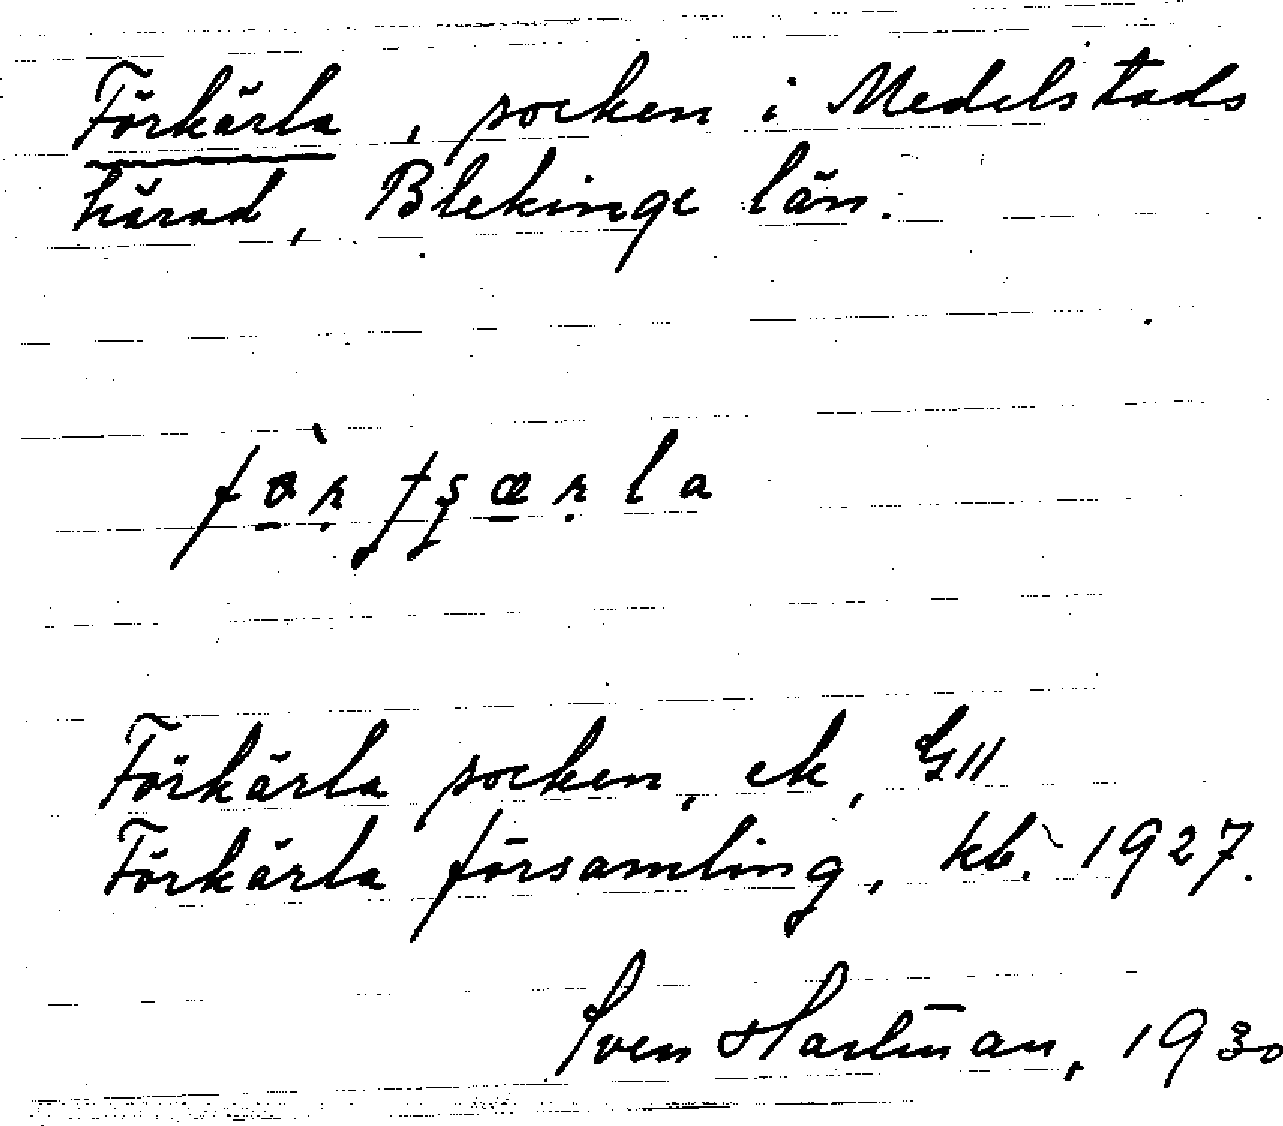 Förkärla, socken i Medelstads
härad, Blekinge län.
Förkärla socken, ek, GII
Förkärla församling, kb. 1927.
Sven Hartman, 1930